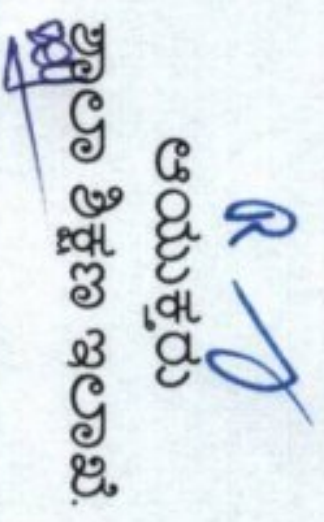 ಆಯುಕ್ತರು
ಶಾಲಾ ಶಿಕ್ಷಣ ಇಲಾಖೆ.